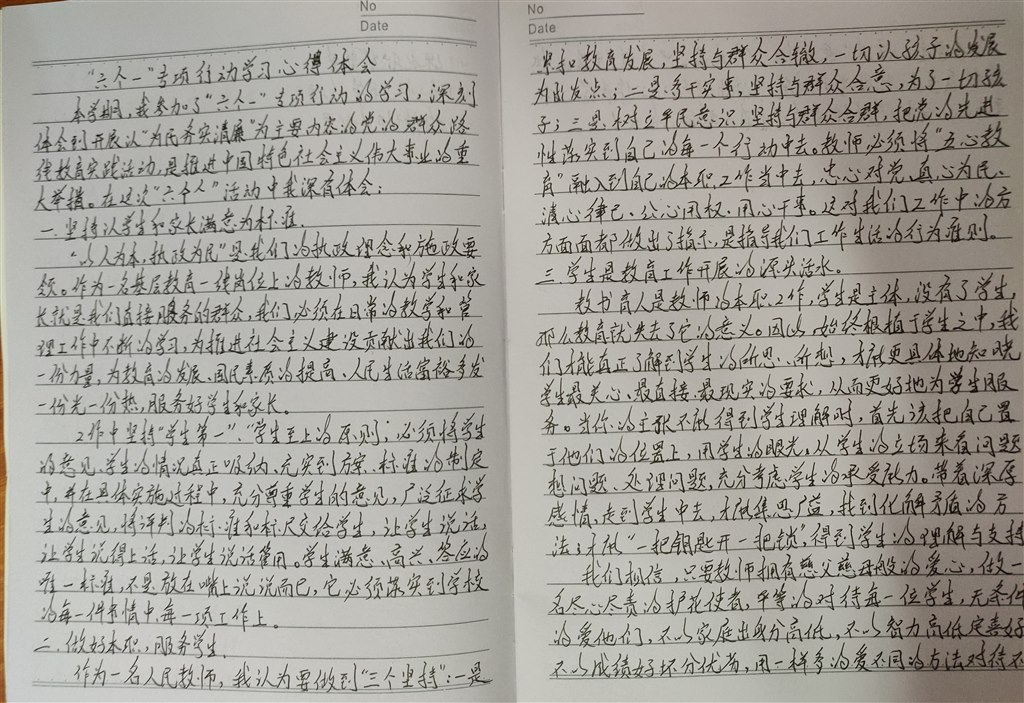 No
Date
"六个一"专项行动学习心得体会
本学期,我参加了"六个一"专项行动的学习,深刻
体会到开展以"为民务实清廉"为主要内容的党的群众路
线教育实践活动,是推进中国特色社会主义伟大事业的重
大举措。在这次"六个一"活动中我深有体会:
一.坚持以学生和家长满意为标准.
"以人为本,执政为民"是我们的执政理念和施政要
领。作为一名基层教育一线岗位上的教师,我认为学生和家
长就是我们直接服务的群众,我们必须在日常的教学和管
理工作中不断的学习,为推进社会主义建设贡献出我们的
一份力量,为教育的发展、国民素质的提高、人民生活富裕多发
一份光一份热,服务好学生和家长。
工作中坚持"学生第一"、"学生至上的原则;必须将学生
的意见、学生的情况真正吸纳、充实到方案、标准的制定
中,并在具体实施过程中,充分尊重学生的意见,广泛征求学
生的意见,将评判的标准和标尺交给学生,让学生说话,
让学生说得上话,让学生说话管用。学生满意、高兴、答应的
唯一标准,不是放在嘴上说说而已,它必须落实到学校
的每一件事情中,每一项工作上。
二.做好本职,服务学生.
作为一名人民教师,我认为要做到"三个坚持":一是
No
Date
坚和教育发展,坚持与群众合辙,一切以孩子的发展
为出发点;二是多干实事,坚持与群众合意,为了一切孩
子;三是树立平民意识,坚持与群众合群,把党的先进
性落实到自己的每一个行动中去。教师必须将"五心教
育"融入到自己的本职工作当中去,忠心对党、真心为民、
清心律己、公心用权、用心干事。这对我们工作中的方
方面面都做出了指示,是指导我们工作生活的行为准则。
三.学生是教育工作开展的源头活水。
教书育人是教师的本职工作,学生是主体,没有了学生,
那么教育就失去了它的意义。因此,始终根植于学生之中,我
们才能真正了解到学生的所思、所想,才能更具体地知晓
学生最关心、最直接、最现实的要求,从而更好地为学生服
务。当你的主张不能得到学生理解时,首先该把自己置
于他们的位置上,用学生的眼光。从学生的立场来看问题
想问题、处理问题,充分考虑学生的承受能力。带着深厚
感情,走到学生中去,才能集思广益,找到化解矛盾的方
法;才能"一把钥匙开一把锁",得到学生的理解与支持
我们相信,只要教师拥有慈父慈母般的爱心,做一
名尽心尽责的护花使者,平等的对待每一位学生,无条件
的爱他们,不以家庭出身分高低,不以智力高低定喜好
不以成绩好坏分优劣,用一样多的爱不同的方法对待不